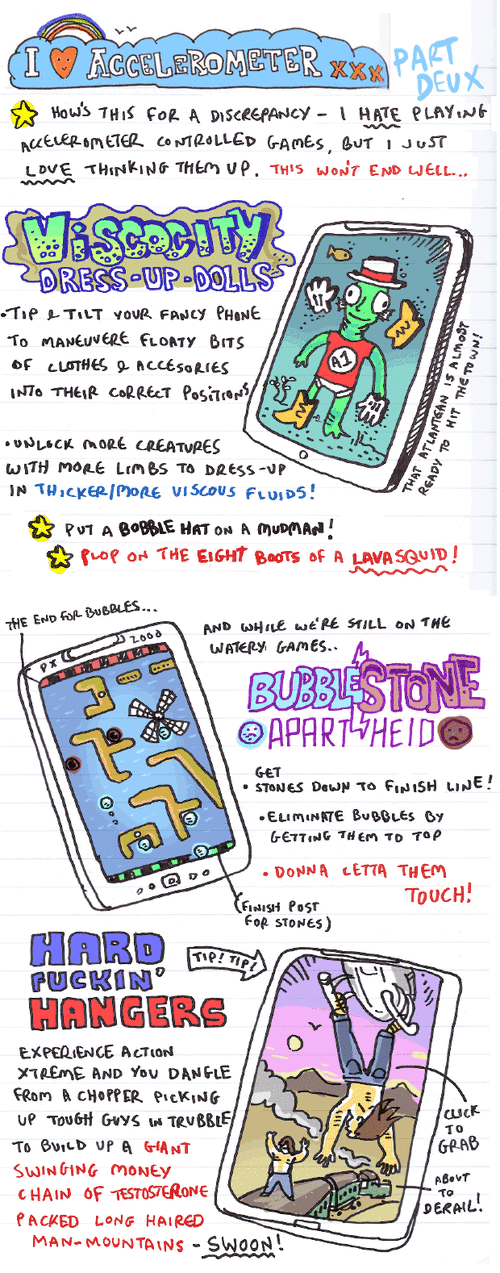 I ♥ ACCELEROMETER XXX
PART
DEUX
HOW'S THIS FOR A DISCREPANCY - I HATE PLAYING
ACCELEROMETER CONTROLLED GAMES, BUT I JUST
LOVE THINKING THEM UP. THIS WON'T END WELL...
ViSCOCITY
DRESS-UP-DOLLS
• TIP & TILT YOUR FANCY PHONE
TO MANEUVERE FLOATY BITS
OF CLOTHES & ACCESORIES
INTO THEIR CORRECT POSITIONS
A1
THAT ATLANTEAN IS ALMOST
READY TO HIT THE TOWN!
• UNLOCK MORE CREATURES
WITH MORE LIMBS TO DRESS-UP
IN THICKER/MORE VISCOUS FLUIDS!
PUT A BOBBLE HAT ON A MUDMAN!
PLOP ON THE EIGHT BOOTS OF A LAVASQUID!
THE END FOR BUBBLES...
PX 2000
AND WHILE WE'RE STILL ON THE
WATERY GAMES..
BUBBLE STONE
APARTHEID
GET
• STONES DOWN TO FINISH LINE!
• ELIMINATE BUBBLES BY
GETTING THEM TO TOP
• DONNA LETTA THEM
TOUCH!
(FINISH POST
FOR STONES)
HARD
FUCKIN'
HANGERS
TIP! TIP!
EXPERIENCE ACTION
XTREME AND YOU DANGLE
FROM A CHOPPER PICKING
UP TOUGH GUYS IN TRUBBLE
TO BUILD UP A GIANT
SWINGING MONEY
CHAIN OF TESTOSTERONE
PACKED LONG HAIRED
MAN-MOUNTAINS - SWOON!
CLICK
TO
GRAB
ABOUT
TO
DERAIL!